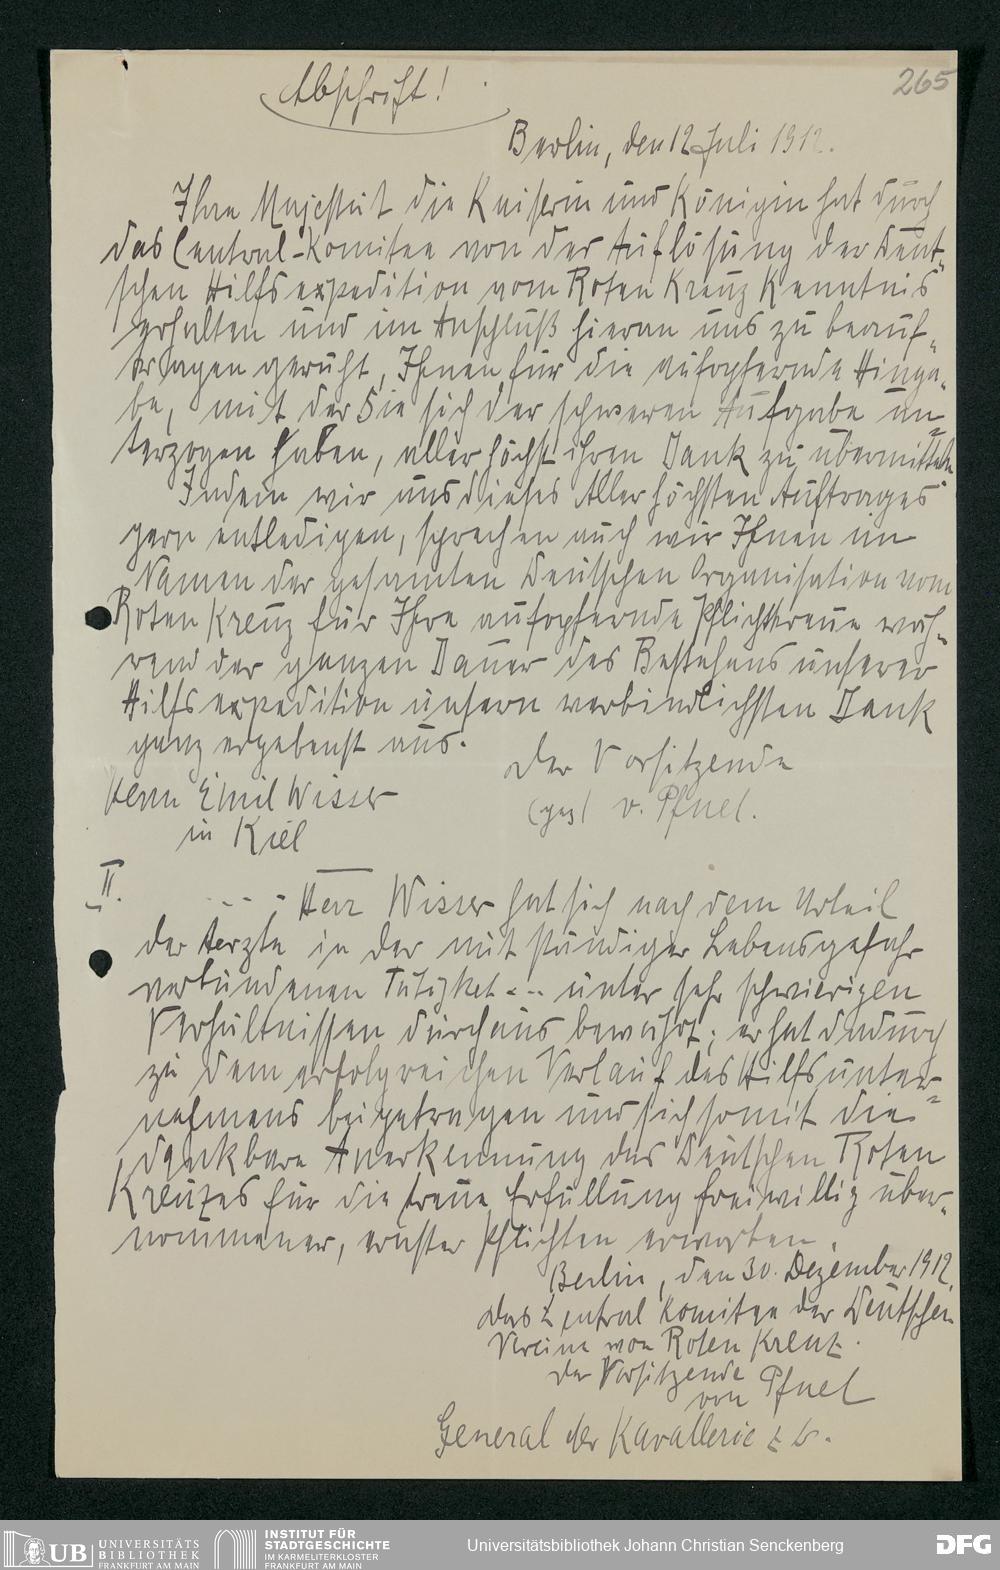 Abschrift!
265
Berlin, den 12 Juli 1912.
Ihre Majestät die Kaiserin und Königin hat durch
das Central-Komitee von der Auflösung der Deut-
schen Hilfsexpedition vom Roten Kreuz Kenntnis
erhalten und im Anschluß hieran uns zu beauf-
tragen geruht, Ihnen für die aufopfernde Hinga-
be, mit der Sie sich der schweren Aufgabe un-
terzogen haben, allerhöchst ihren Dank zu übermitteln.
Indem wir uns dieses Allerhöchsten Auftrages
gern entledigen, sprechen auch wir Ihnen im
Namen der gesamten Deutschen Organisation vom
Roten Kreuz für Ihre aufopfernde Pflichttreue wäh-
rend der ganzen Dauer des Bestehens unserer
Hilfsexpedition unsern verbindlichsten Dank
ganz ergebenst aus.
Der Vorsitzende
(gez) v. Pfuel.
Herrn Emil Wisser
in Kiel
II.
.... Herr Wisser hat sich nach dem Urteil
der Aerzte in der mit ständiger Lebensgefahr
verbundenen Tätigket ... unter sehr schwierigen
Verhältnissen durchaus bewährt; er hat dadurch
zu dem erfolgreichen Verlauf des Hilfsunter-
nehmens beigetragen und sich somit die
dankbare Anerkennung des Deutschen Roten
Kreuzes für die treue Erfüllung freiwillig über-
nommener, ernster Pflichten erworben.
Berlin, den 30. Dezember 1912.
Das Zentral Komitee der Deutschen
Vereine vom Roten Kreuz.
Der Vorsitzende
von Pfuel
General der Kavallerie z. D.
UB UNIVERSITÄTS
BIBLIOTHEK
FRANKFURT AM MAIN
INSTITUT FÜR
STADTGESCHICHTE
IM KARMELITERKLOSTER
FRANKFURT AM MAIN
Universitätsbibliothek Johann Christian Senckenberg
DFG